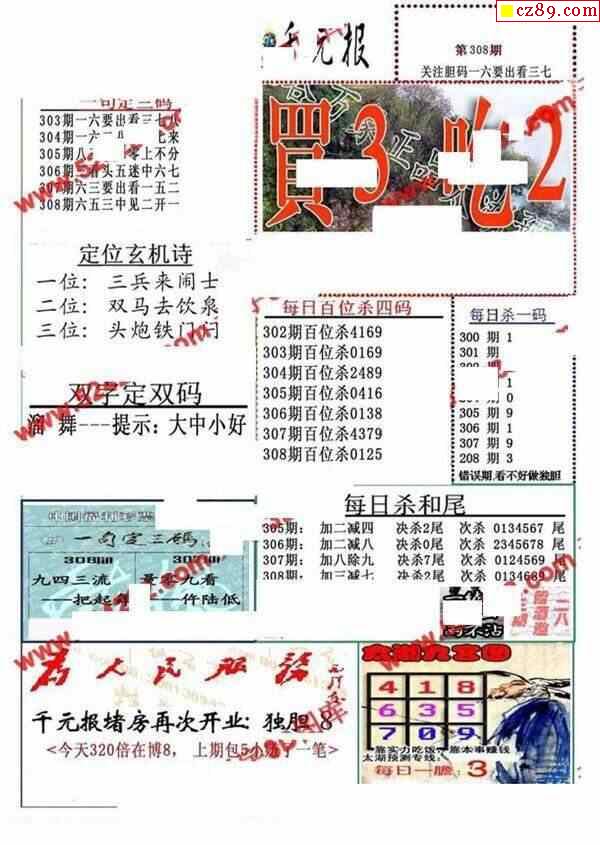 cz89.com
千元报
第308期
关注胆码一六要出看三七
買3吃2
一句定三码
303期一六要出看三七八
304期一六二 七来
305期八 零上不分
306期 看头五迷中六七
307期六三要出看一五二
308期六五三中见二开一
定位玄机诗
一位: 三兵来闹士
二位: 双马去饮泉
三位: 头炮铁门闩
双字定双码
溜 舞---提示:大中小好
每日百位杀四码
302期百位杀4169
303期百位杀0169
304期百位杀2489
305期百位杀0416
306期百位杀0138
307期百位杀4379
308期百位杀0125
每日杀一码
300 期 1
301 期
302
1
0
305 期 9
306 期 9
307 期 9
208 期 3
错误期,看不好做独胆
每日杀和尾
305期: 加二减四 决杀2尾 次杀 0134567 尾
306期: 加二减八 决杀0尾 次杀 2345678 尾
307期: 加八除九 决杀7尾 次杀 0124569 尾
308期: 加三减七 决杀2尾 次杀 0134689 尾
一句定三码
308
九四三流
——把起
零九看
——仵陆低
为人民服务
千元报堵房再次开业: 独胆 8
<今天320倍在博8, 上期包5小 了一笔>
太湖九宫图
4 1 8
6 3 5
7 0 9
靠实力吃饭, 靠本事赚钱
太湖预测专线:
每日一胆: 3